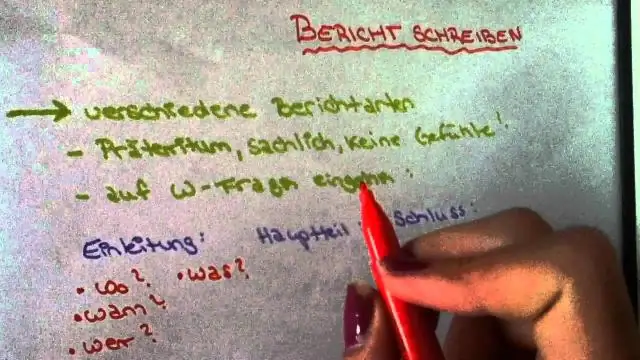 BERICHT SCHREIBEN
→ verschiedene Berichtarten
- Präteritum, sachlich, keine Gefühle!
- auf W-Fragen eingehen:
Einleitung: Hauptteil: Schluss:
• wo? • was?
• wann?
• wer?